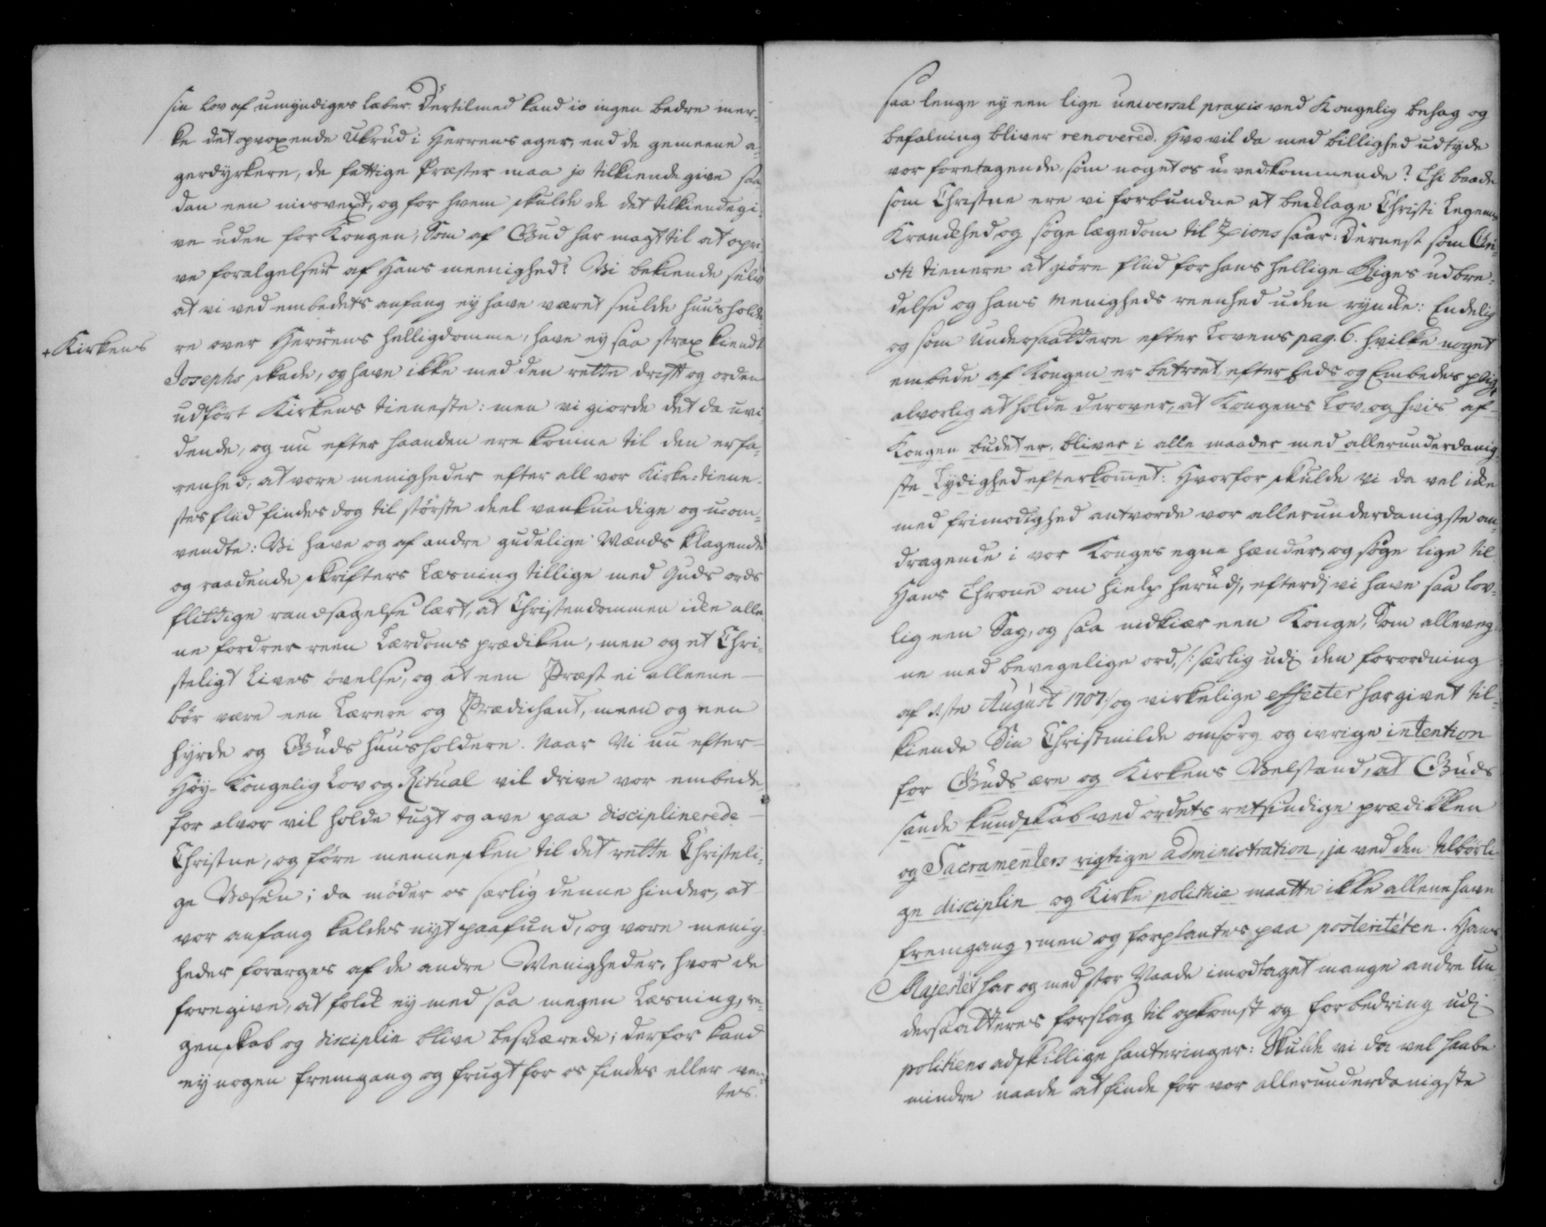 sin lov af umyndiges læber. Dertilmed kand jo ingen bedre mer-
ke det opvoxende Ukrud i Herrens ager, end de gemeene a-
gerdyrkere, de fattige Præster maa jo tilkiendegive saa
dan een misvext, og for hvem skulde de det tilkiendegi-
ve uden for Kongen, som af Gud har magt til at
ve foralgelser af Hans meenighed? Vi bekiende selv
at vi ved embedets anfang ey have været snilde huusholde-
+ Kirkens
re over Herrens helligdomme, have ey saa strax kiendt
Josephs skade, og have ikke med den rette drift og orden
udført Kirkens tieneste: men vi giorde det da uvi
dende, og nu efter haanden ere komne til den erfa-
renhed, at vore menigheder efter all vor Kirke-tiene-
stes flid findes dog til største deel vankundige og uom-
vendte: Vi have og af andre gudelige Mænds klagende
og raadende skrifters Læsning tillige med Guds ords
flittige randsagelse lært, at Christendommen icke alle
ne fordrer reen Lærdoms prædiken, men og et Chri-
steligt Livs øvelse, og at een Præst ei alleene
bør være een Lærere og Prædichant, meen og een
Hyrde og Guds huusholdere. Naar Vi nu efter
Høy-Kongelig Lov og Ritual vil drive vor embede
for alvor vil holde tugt og ave paa disciplinerede
Christne, og føre mennesken til det rette Christeli-
ge Væsen; da møder os særlig denne hinder, at
vor anfang kaldes nyt paafund, og vore menig-
heder forarges af de andre Menigheder, hvor de
foregive, at folck ey med saa megen Læsning, re-
genskab og disciplin blive besværede; derfor kand
ey nogen fremgang og frugt for os findes eller ven-
tes.
saa lenge ey een lige universal praxis ved Kongelig behag og
befalning bliver renovered. Hvo vil da med billighed udtyde
vor foretagende som noget os u-vedkommende? Thi baade
som Christne ere vi forbundne at beklage Christi Legems
Kranckhed og søge lægedom til Zions saar: Dernest som Chri-
sti tienere at giøre flid for hans hellige Riges udbre-
delse og hans Menigheds reenhed uden ryncke: Endelig
og som Undersaattere efter Lovens pag. 6. hvilke noget
embede af Kongen er betroet efter Eeds og Embedes pligt
alvorlig at holde derover, at Kongens Lov og hvis af
Kongen budet er, bliver i alle maader med allerunderdanig-
ste Lydighed efterkommet: Hvorfor skulde vi da vel icke
med frimodighed antvorde vor allerunderdanigste an-
dragende i vor Konges egne hænder, og søge lige til
Hans Throne om hielp herudj, efterdj vi have saa lov-
lig een Sag, og saa nidkiær een Konge, som alleveg-
ne med bevegelige ord /: særlig udj den forordning
af August 1707 :/ og virkelige effecter har givet til-
kiende Sin Christmilde omsorg og ivrige intention
for Guds ære og Kirkens Velstand, at Guds
sande kundskab ved ordets retsindige prædikken
og Sacramenters rigtige administration, ja ved den tilbørli
ge disciplin og Kirke politie maatte ikke allene have
fremgang, men og forplantes paa posteritéten. Hans
Majestét har og med stor Naade imodtaget mange andre Un-
dersaatteres forslag til opkomst og forbedring udj
politiens adskillige hanteringer: Skulde vi da vel haabe
mindre naade at finde for vor allerunderdanigste